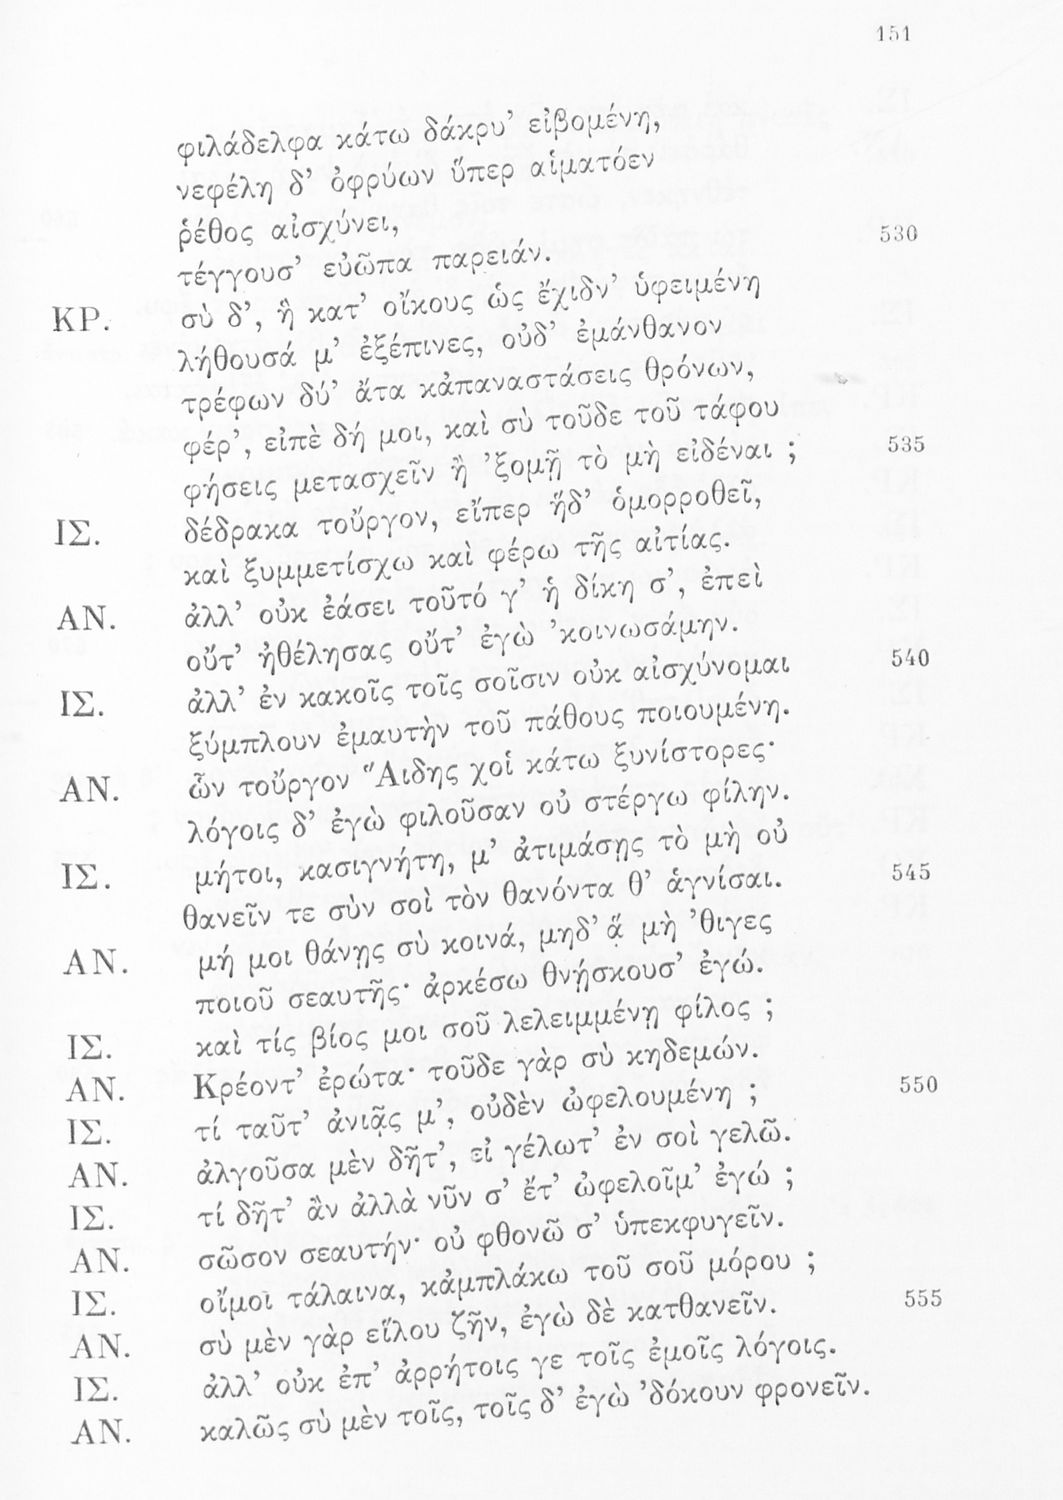 151
φιλάδελφα κάτω δάκρυ’ εἰβομένη,
νεφέλη δ’ ὀφρύων ὕπερ αἱματόεν
ῥέθος αἰσχύνει,
τέγγουσ’ εὐῶπα παρειάν. 530
ΚΡ. σὺ δ’, ἣ κατ’ οἴκους ὡς ἔχιδν’ ὑφειμένη
λήθουσά μ’ ἐξέπινες, οὐδ’ ἐμάνθανον
τρέφων δύ’ ἄτα κἀπαναστάσεις θρόνων,
φέρ’, εἰπὲ δή μοι, καὶ σὺ τοῦδε τοῦ τάφου
φήσεις μετασχεῖν ἢ ’ξομῇ τὸ μὴ εἰδέναι ; 535
ΙΣ. δέδρακα τοὔργον, εἴπερ ἥδ’ ὁμορροθεῖ,
καὶ ξυμμετίσχω καὶ φέρω τῆς αἰτίας.
ΑΝ. ἀλλ’ οὐκ ἐάσει τοῦτό γ’ ἡ δίκη σ’, ἐπεὶ
οὔτ’ ἠθέλησας οὔτ’ ἐγὼ ’κοινωσάμην.
ΙΣ. ἀλλ’ ἐν κακοῖς τοῖς σοῖσιν οὐκ αἰσχύνομαι 540
ξύμπλουν ἐμαυτὴν τοῦ πάθους ποιουμένη.
ΑΝ. ὧν τοὔργον Ἅιδης χοἱ κάτω ξυνίστορες·
λόγοις δ’ ἐγὼ φιλοῦσαν οὐ στέργω φίλην.
ΙΣ. μήτοι, κασιγνήτη, μ’ ἀτιμάσῃς τὸ μὴ οὐ
θανεῖν τε σὺν σοὶ τὸν θανόντα θ’ ἁγνίσαι. 545
ΑΝ. μή μοι θάνῃς σὺ κοινά, μηδ’ ἃ μὴ ’θιγες
ποιοῦ σεαυτῆς· ἀρκέσω θνῄσκουσ’ ἐγώ.
ΙΣ. καὶ τίς βίος μοι σοῦ λελειμμένῃ φίλος ;
ΑΝ. Κρέοντ’ ἐρώτα· τοῦδε γὰρ σὺ κηδεμών.
ΙΣ. τί ταῦτ’ ἀνιᾷς μ’, οὐδὲν ὠφελουμένη ; 550
ΑΝ. ἀλγοῦσα μὲν δῆτ’, εἰ γέλωτ’ ἐν σοὶ γελῶ.
ΙΣ. τί δῆτ’ ἂν ἀλλὰ νῦν σ’ ἔτ’ ὠφελοῖμ’ ἐγώ ;
ΑΝ. σῶσον σεαυτήν· οὐ φθονῶ σ’ ὑπεκφυγεῖν.
ΙΣ. οἴμοι τάλαινα, κἀμπλάκω τοῦ σοῦ μόρου ;
ΑΝ. σὺ μὲν γὰρ εἵλου ζῆν, ἐγὼ δὲ κατθανεῖν. 555
ΙΣ. ἀλλ’ οὐκ ἐπ’ ἀρρήτοις γε τοῖς ἐμοῖς λόγοις.
ΑΝ. καλῶς σὺ μὲν τοῖς, τοῖς δ’ ἐγὼ ’δόκουν φρονεῖν.